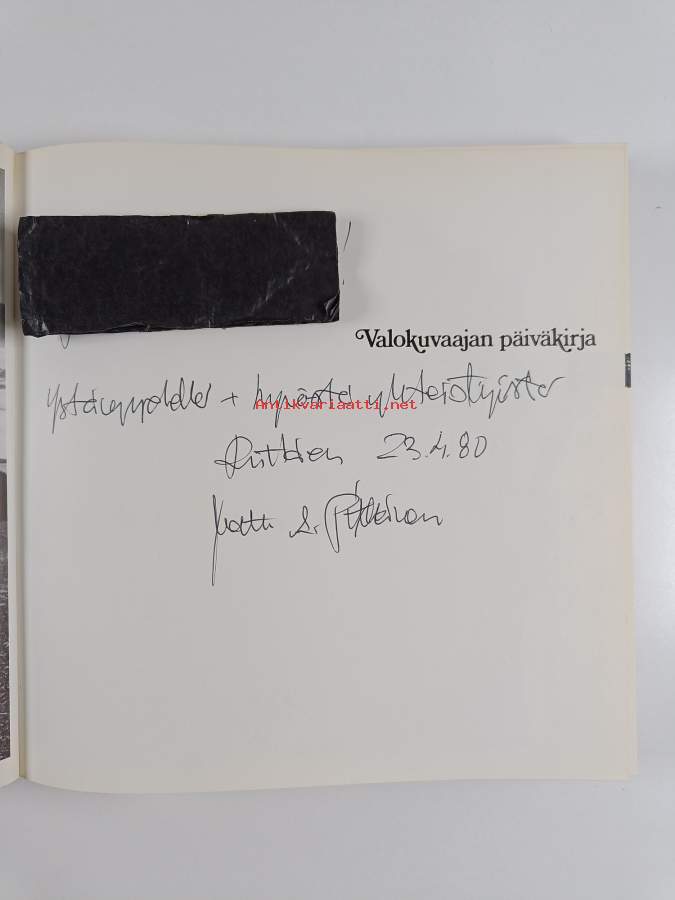 Valokuvaajan päiväkirja
Ystävyydellä + hyvästä yhteistyöstä
Antikvariaatti.net
Kiittäen 23.4.80
Matti A. Pitkänen